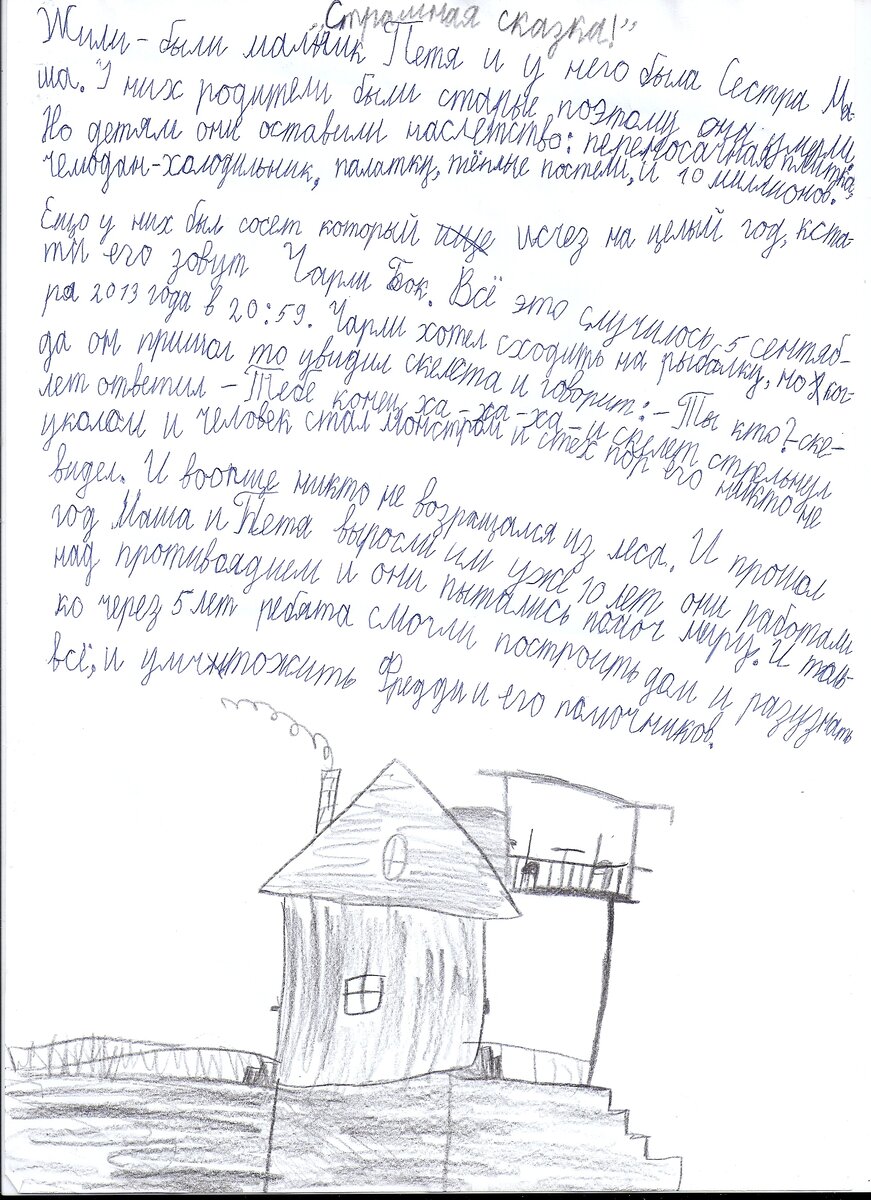 „Страшная сказка!”
Жили-были мальчик Петя и у него была Сестра Ма-
ша. У них родители были старые поэтому они умерли.
Но детям они оставили наслетство: переносачная плитка,
чемодан-холодильник, палатку, тёплые постели, и 10 миллионов.
Ещо у них был сосет который ище исчез на целый год, кста-
ти его зовут Чарли Бок. Всё это случилось 5 сентяб-
ра 2013 года в 20:59. Чарли хотел сходить на рыбалку, но ког-
да он пришол то увидил скелета и говорит: - Ты кто? - ске-
лет ответил - Тебе конец ха-ха-ха - и скелет стрельнул
уколом и человек стал монстром и стех пор его никто не
видел. И воопще никто не возращался из леса. И прошол
год Маша и Петя выросли им уже 10 лет они работали
над противоядием и они пытались помоч миру. И толь-
ко через 5 лет ребята смогли построить дом и разузнать
всё, и уничтожить Фредди и его помочников.